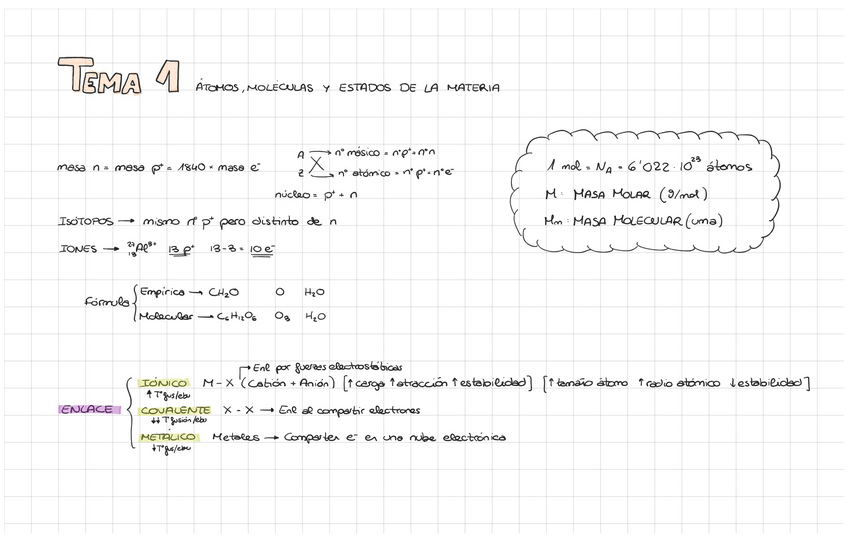 TEMA 1 ÁTOMOS, MOLÉCULAS Y ESTADOS DE LA MATERIA
masa n = masa p⁺ = 1840 · masa e⁻
A → nº másico = nºp⁺ + nºn
X
Z → nº atómico = nº p⁺ = nº e⁻
núcleo = p⁺ + n
1 mol = N_A = 6'022 · 10²³ átomos
M: MASA MOLAR (g/mol)
Mm: MASA MOLECULAR (uma)
ISÓTOPOS → mismo nº p⁺ pero distinto de n
IONES → ²⁷₁₃Al³⁺ 13 p⁺ 13-3 = 10 e⁻
Fórmula
Empírica → CH₂O O H₂O
Molecular → C₆H₁₂O₆ O₃ H₂O
ENLACE
→ Enl por fuerzas electrostáticas
IÓNICO M-X (Catión + Anión) [↑carga ↑atracción ↑estabilidad] [↑tamaño átomo ↑radio atómico ↓estabilidad]
↑Tª fus/ebu
COVALENTE X-X → Enl al compartir electrones
↓↓Tª fusión/ebu
METÁLICO Metales → Comparten e⁻ en una nube electrónica
↓Tª fus/ebu